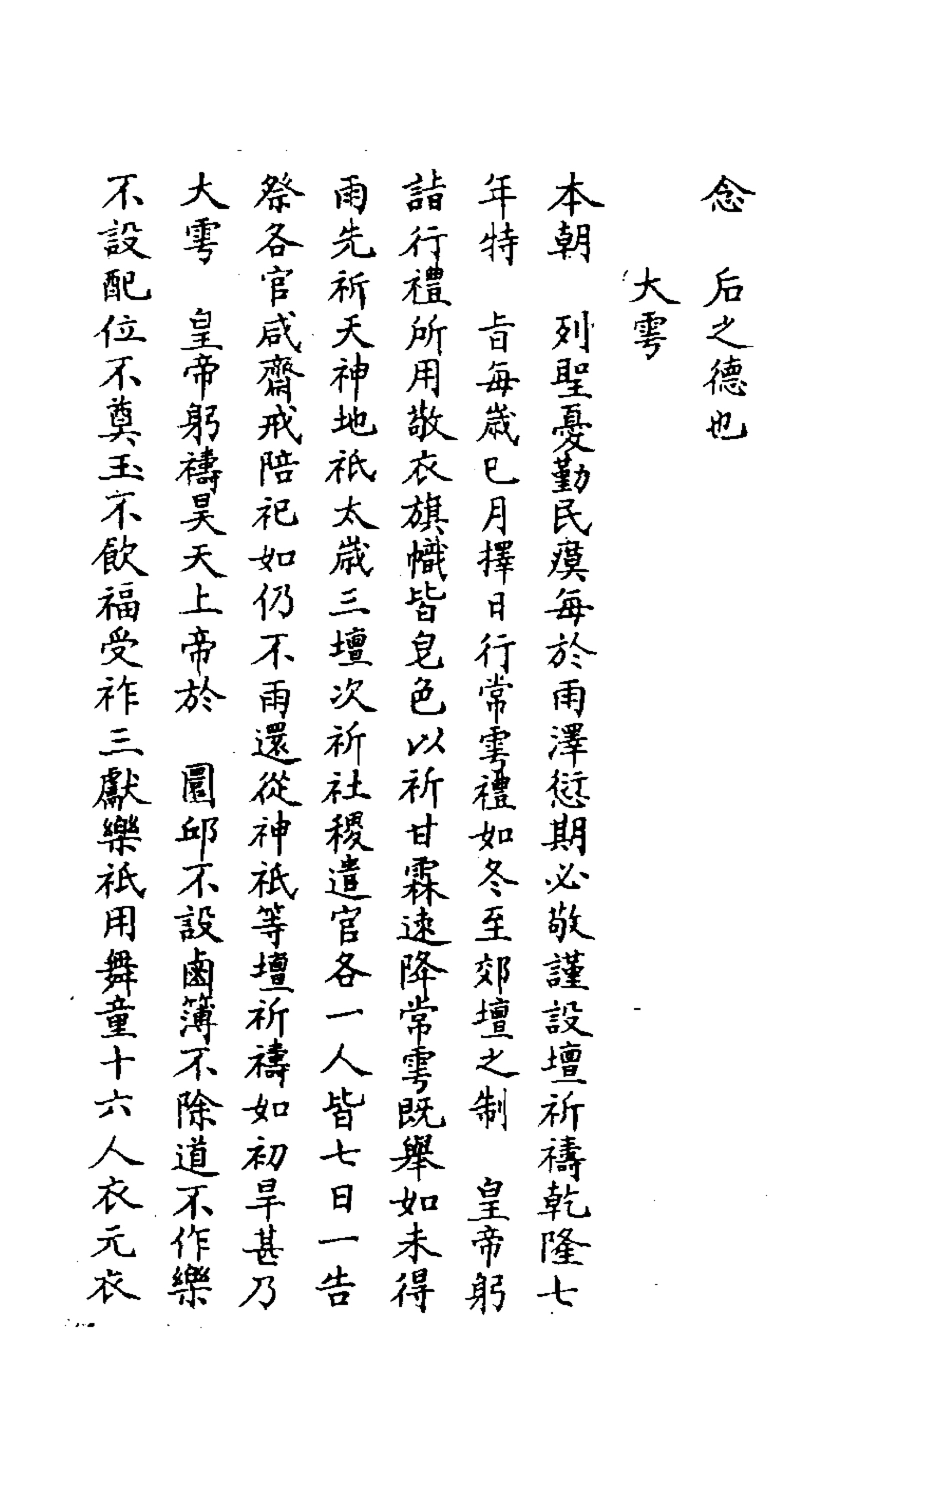 念　后之德也
大雩
本朝　列聖憂勤民瘼每於雨澤愆期必敬謹設壇祈禱乾隆七
年特　旨每歲巳月擇日行常雩禮如冬至郊壇之制　皇帝躬
詣行禮所用敬衣旗幟皆皂色以祈甘霖速降常雩既舉如未得
雨先祈天神地祇太歲三壇次祈社稷遣官各一人皆七日一告
祭各官咸齋戒陪祀如仍不雨還從神祇等壇祈禱如初旱甚乃
大雩　皇帝躬禱昊天上帝於　圜邱不設鹵簿不除道不作樂
不設配位不奠玉不飲福受祚三獻樂祇用舞童十六人衣元衣